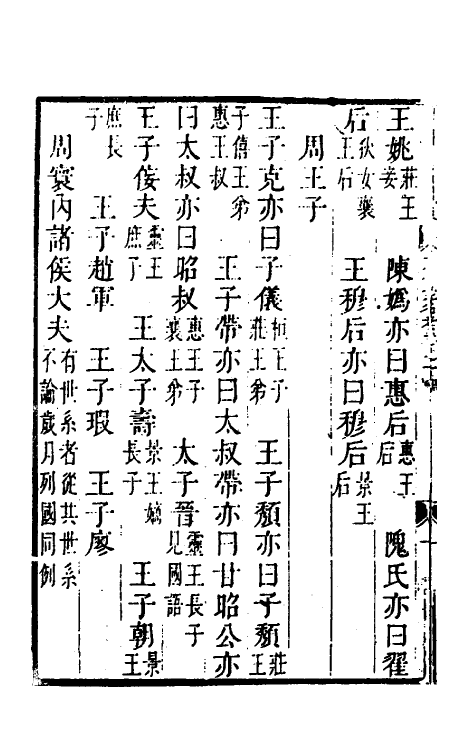 王姚莊王妾　陳媯亦曰惠后惠王后　隗氏亦曰翟
后狄女襄王后　王穆后亦曰穆后景王后
周王子
王子克亦曰子儀桓王子莊王弟　王子頹亦曰子頹莊王
子僖王弟惠王叔　王子帶亦曰太叔帶亦曰甘昭公亦
曰太叔亦曰昭叔惠王子襄王弟　太子晉靈王長子見國語
王子佞夫靈王庶子　王太子壽景王嫡長子　王子朝景王
庶長子　王子趙軍　王子瑕　王子廖
周寰內諸侯大夫有世系者從其世系不論歲月列國同例